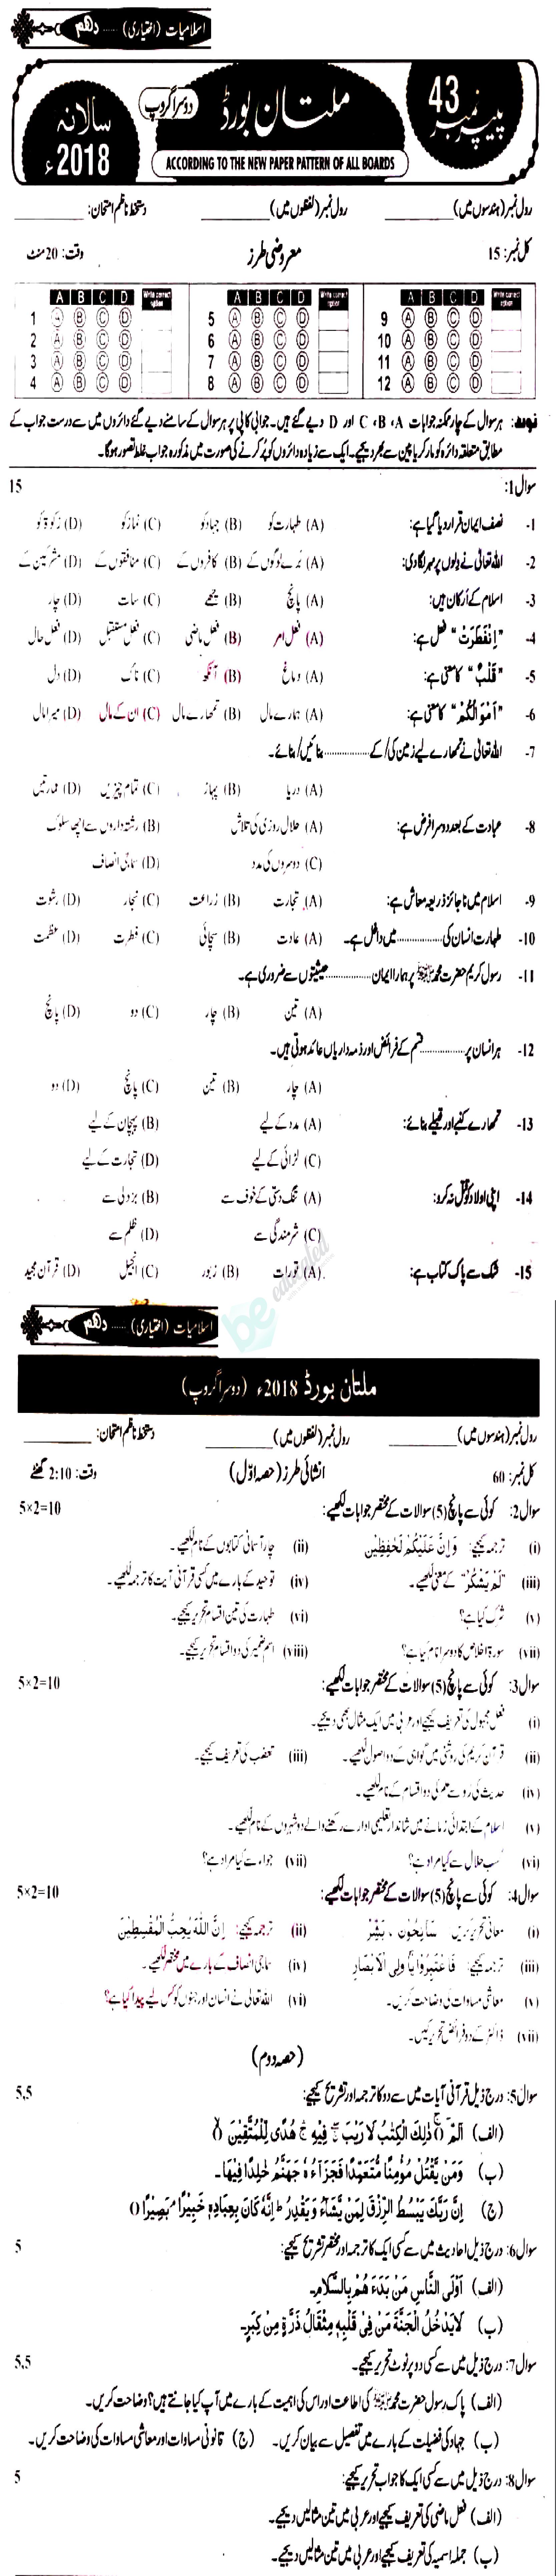 اسلامیات (اختیاری) ...... دھم
پیپر نمبر 43
ملتان بورڈ
دوسرا گروپ
سالانہ 2018ء
ACCORDING TO THE NEW PAPER PATTERN OF ALL BOARDS
رول نمبر (ہندسوں میں) ________ رول نمبر (لفظوں میں) ________ دستخط ناظم امتحان: ________
کل نمبر: 15 معروضی طرز وقت: 20 منٹ
A B C D Write correct option A B C D Write correct option A B C D Write correct option
1 A B C D 5 A B C D 9 A B C D
2 A B C D 6 A B C D 10 A B C D
3 A B C D 7 A B C D 11 A B C D
4 A B C D 8 A B C D 12 A B C D
نوٹ: ہر سوال کے چار ممکنہ جوابات C ،B ،A اور D دیے گئے ہیں۔ جوابی کاپی پر ہر سوال کے سامنے دیے گئے دائروں میں سے درست جواب کے
مطابق متعلقہ دائرہ کو مارکر یا پین سے بھر دیجیے۔ ایک سے زیادہ دائروں کو پُر کرنے کی صورت میں مذکورہ جواب غلط تصور ہوگا۔
سوال 1: 15
1- نصف ایمان قرار دیا گیا ہے: (A) طہارت کو (B) جہاد کو (C) نماز کو (D) زکوٰۃ کو
2- اللہ تعالیٰ نے دلوں پر مہر لگا دی: (A) بُرے لوگوں کے (B) کافروں کے (C) منافقوں کے (D) مشرکین کے
3- اسلام کے ارکان ہیں: (A) پانچ (B) چھے (C) سات (D) چار
4- "اِنْفَطَرَتْ" فعل ہے: (A) فعل امر (B) فعل ماضی (C) فعل مستقبل (D) فعل حال
5- "قَلْبٌ" کا معنی ہے: (A) دماغ (B) آنکھ (C) ناک (D) دل
6- "اَمْوَالُکُمْ" کا معنی ہے: (A) ہمارے مال (B) تمھارے مال (C) ان کے مال (D) میرا مال
7- اللہ تعالیٰ نے تمھارے لیے زمین کی/کے .............. بنائیں/بنائے۔
(A) دریا (B) پہاڑ (C) تمام چیزیں (D) عمارتیں
8- عبادت کے بعد دوسرا فرض ہے: (A) حلال روزی کی تلاش (B) رشتہ داروں سے اچھا سلوک
(C) دوسروں کی مدد (D) سماجی انصاف
9- اسلام میں ناجائز ذریعہ معاش ہے: (A) تجارت (B) زراعت (C) نجار (D) رشوت
10- طہارت انسان کی .............. میں داخل ہے۔ (A) عادت (B) سچائی (C) فطرت (D) عظمت
11- رسول کریم حضرت محمد ﷺ پر ہمارا ایمان .............. حیثیتوں سے ضروری ہے۔
(A) تین (B) چار (C) دو (D) پانچ
12- ہر انسان پر .............. قسم کے فرائض اور ذمہ داریاں عائد ہوتی ہیں۔
(A) چار (B) تین (C) پانچ (D) دو
13- تمھارے کنبے اور قبیلے بنائے: (A) مدد کے لیے (B) پہچان کے لیے
(C) لڑائی کے لیے (D) تجارت کے لیے
14- اپنی اولاد کو قتل نہ کرو: (A) تنگ دستی کے خوف سے (B) بزدلی سے
(C) شرمندگی سے (D) ظلم سے
15- شک سے پاک کتاب ہے: (A) تورات (B) زبور (C) انجیل (D) قرآن مجید
be educated
اسلامیات (اختیاری) ...... دھم
ملتان بورڈ 2018ء (دوسرا گروپ)
رول نمبر (ہندسوں میں) ________ رول نمبر (لفظوں میں) ________ دستخط ناظم امتحان: ________
کل نمبر: 60 انشائی طرز (حصہ اوّل) وقت: 2:10 گھنٹے
سوال 2: کوئی سے پانچ (5) سوالات کے مختصر جوابات لکھیے: 5×2=10
(i) ترجمہ کیجیے: وَاِنَّ عَلَیْکُمْ لَحٰفِظِیْنَ (ii) چار آسمانی کتابوں کے نام لکھیے۔
(iii) "لَمْ یَشْکُرْ" کے معنی لکھیے۔ (iv) توحید کے بارے میں کسی قرآنی آیت کا ترجمہ لکھیے۔
(v) شرک کیا ہے؟ (vi) طہارت کی تین اقسام تحریر کیجیے۔
(vii) سورۃ اخلاص کا دوسرا نام کیا ہے؟ (viii) اسم ضمیر کی دو اقسام تحریر کیجیے۔
سوال 3: کوئی سے پانچ (5) سوالات کے مختصر جوابات لکھیے: 5×2=10
(i) فعل مجہول کی تعریف کیجیے اور عربی میں ایک مثال بھی دیجیے۔
(ii) قرآن کریم کی روشنی میں گواہی کے دو اصول لکھیے۔ (iii) تعصب کی تعریف کیجیے۔
(iv) حدیث کی رو سے علم کی دو اقسام کے نام لکھیے۔
(v) اسلام کے ابتدائی زمانے میں شاندار تعلیمی ادارے رکھنے والے دو شہروں کے نام لکھیے۔
(vi) کسب حلال سے کیا مراد ہے؟ (vii) جواء سے کیا مراد ہے؟
سوال 4: کوئی سے پانچ (5) سوالات کے مختصر جوابات لکھیے: 5×2=10
(i) معانی تحریر کریں سَآئِحُوْنَ ، بَشِّرْ (ii) ترجمہ کیجیے: اِنَّ اللّٰهَ یُحِبُّ الْمُقْسِطِیْنَ
(iii) ترجمہ کیجیے: فَاعْتَبِرُوْا یٰٓاُولِی الْاَبْصَارِ (iv) سماجی انصاف کے بارے میں مختصر لکھیے۔
(v) معاشی مساوات کی وضاحت کریں۔ (vi) اللہ تعالیٰ نے انسان اور جنوں کو کس لیے پیدا کیا ہے؟
(vii) ڈاکٹر کے دو فرائض تحریر کیں۔
(حصہ دوم)
سوال 5: درج ذیل قرآنی آیات میں سے دو کا ترجمہ اور تشریح کیجیے: 5,5
(الف) الٓمّٓ ۝ ذٰلِکَ الْکِتٰبُ لَا رَیْبَ ۛ فِیْهِ ۛ هُدًی لِّلْمُتَّقِیْنَ ۝
(ب) وَمَنْ یَّقْتُلْ مُؤْمِنًا مُّتَعَمِّدًا فَجَزَآءُہٗ جَهَنَّمُ خٰلِدًا فِیْهَا۔
(ج) اِنَّ رَبَّکَ یَبْسُطُ الرِّزْقَ لِمَنْ یَّشَآءُ وَیَقْدِرُ ط اِنَّهٗ کَانَ بِعِبَادِہٖ خَبِیْرًا م بَصِیْرًا ۝
سوال 6: درج ذیل احادیث میں سے کسی ایک کا ترجمہ اور مختصر تشریح کیجیے: 5
(الف) اَوْلَی النَّاسِ مَنْ بَدَءَ هُمْ بِالسَّلَامِ۔
(ب) لَایَدْخُلُ الْجَنَّةَ مَنْ فِیْ قَلْبِهٖ مِثْقَالُ ذَرَّةٍ مِنْ کِبَرٍ۔
سوال 7: درج ذیل میں سے کسی دو پر نوٹ تحریر کیجیے۔ 5,5
(الف) پاک رسول حضرت محمد ﷺ کی اطاعت اور اس کی اہمیت کے بارے میں آپ کیا جانتے ہیں؟ وضاحت کریں۔
(ب) جہاد کی فضیلت کے بارے میں تفصیل سے بیان کریں۔ (ج) قانونی مساوات اور معاشی مساوات کی وضاحت کریں۔
سوال 8: درج ذیل میں سے کسی ایک کا جواب تحریر کیجیے: 5
(الف) فعل ماضی کی تعریف کیجیے اور عربی میں تین مثالیں دیجیے۔
(ب) جملہ اسمیہ کی تعریف کیجیے اور عربی میں تین مثالیں دیجیے۔